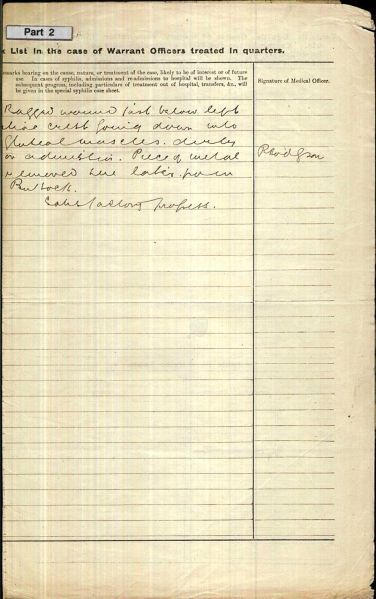 Part 2
k List in the case of Warrant Officers treated in quarters.
emarks bearing on the cause, nature, or treatment of the case, likely to be of interest or of future
use. In cases of syphilis, admissions and re-admissions to hospital will be shown. The
subsequent progress, including particulars of treatment out of hospital, transfers, &c., will
be given in the special syphilis case sheet.
Signature of Medical Officer.
Ragged wound just below left
iliac crest going down into
gluteal muscles. dirty
on admission. Piece of metal
removed later from
Buttock.
Satisfactory progress.